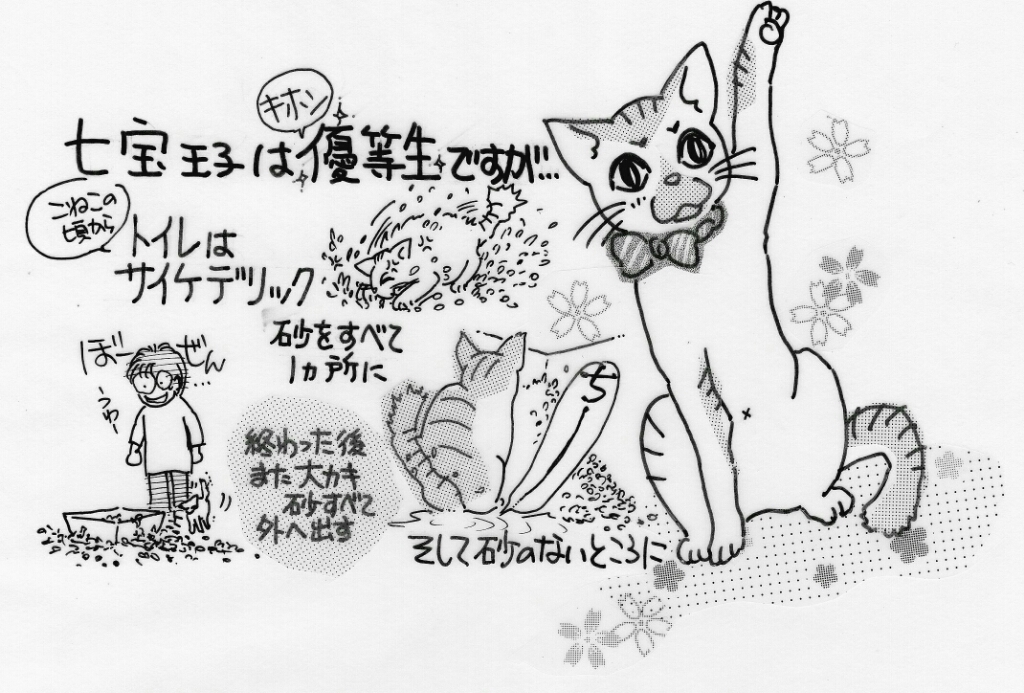 キホン
七宝王子は優等生ですが…
こねこの
頃から
トイレは
サイケデリック
砂をすべて
1ヵ所に
そして砂のないところに
ち
終わった後
また大カキ
砂すべて
外へ出す
ぼーぜん…
うわー